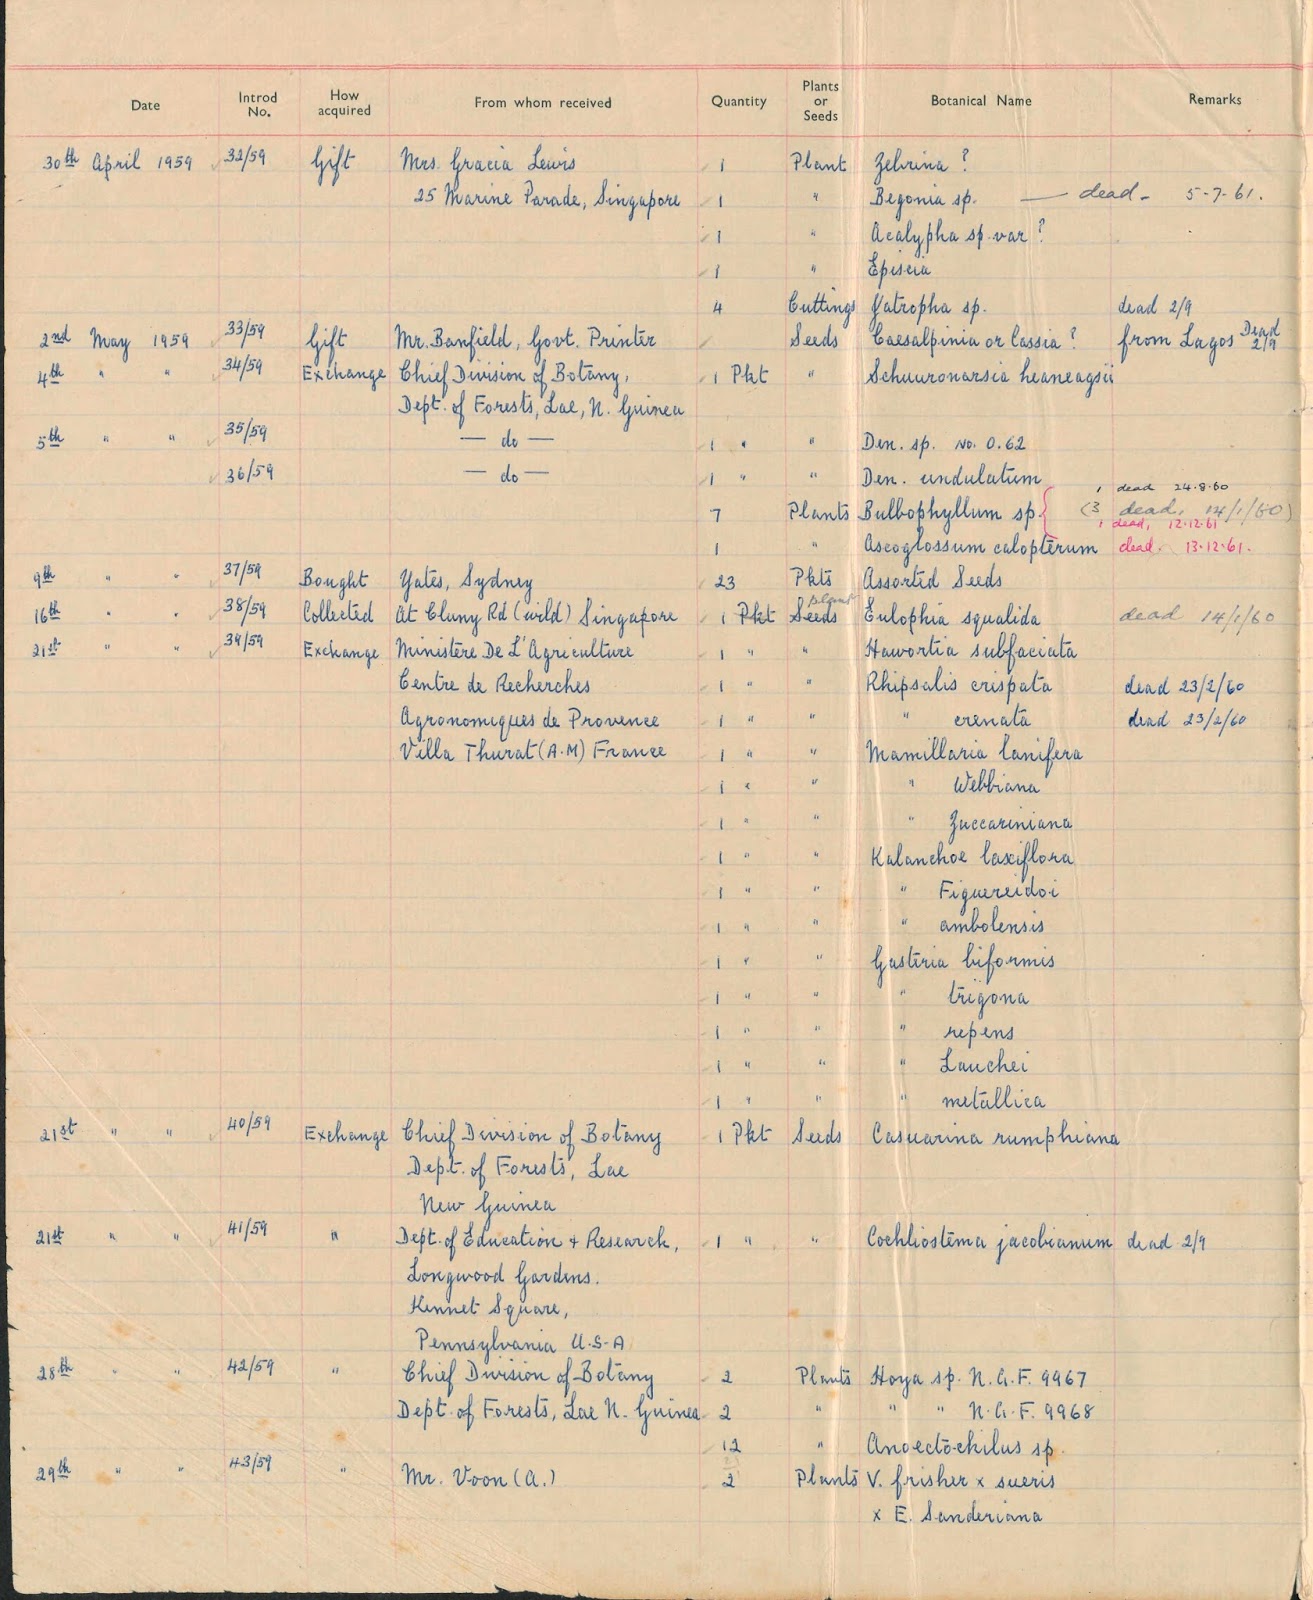 Date Introd No. How acquired From whom received Quantity Plants or Seeds Botanical Name Remarks
30th April 1959 32/59 Gift Mrs. Gracia Lewis 1 Plant Zebrina ?
25 Marine Parade, Singapore 1 " Begonia sp. — dead - 5-7-61.
1 " Acalypha sp. var ?
1 " Episcia
4 Cuttings Jatropha sp. dead 2/9
2nd May 1959 33/59 Gift Mr. Banfield, Govt. Printer Seeds Caesalpinia or Cassia ? from Lagos Dead 2/9
4th " " 34/59 Exchange Chief Division of Botany, 1 Pkt " Schuuronarsia heaneagsii
Dept. of Forests, Lae, N. Guinea
5th " " 35/59 — do — 1 " " Den. sp. No. 0.62
36/59 — do — 1 " " Den. undulatum
1 dead 24.8.60
7 Plants Bulbophyllum sp. (3 dead, 14/1/60)
1 dead, 12.12.61
1 " Ascoglossum calopterum dead. 13.12.61.
9th " " 37/59 Bought Yates, Sydney 23 Pkts Assorted Seeds
16th " " 38/59 Collected At Cluny Rd (wild) Singapore 1 Pkt Seeds plant Eulophia squalida dead 14/1/60
21st " " 39/59 Exchange Ministère De L'Agriculture 1 " " Hawortia subfaciata
Centre de Recherches 1 " " Rhipsalis crispata dead 23/2/60
Agronomiques de Provence 1 " " " crenata dead 23/2/60
Villa Thurat (A.M) France 1 " " Mamillaria lanifera
1 " " " Webbiana
1 " " " Zuccariniana
1 " " Kalanchoe laxiflora
1 " " " Figuereidoi
1 " " " ambolensis
1 " " Gasteria biformis
1 " " " trigona
1 " " " repens
1 " " " Lauchei
1 " " " metallica
21st " " 40/59 Exchange Chief Division of Botany 1 Pkt Seeds Casuarina rumphiana
Dept. of Forests, Lae
New Guinea
21st " " 41/59 " Dept. of Education + Research, 1 " " Cochliostema jacobianum dead 2/9
Longwood Gardens.
Kennet Square,
Pennsylvania U.S.A
28th " " 42/59 " Chief Division of Botany 2 Plants Hoya sp. N.G.F. 9967
Dept. of Forests, Lae N. Guinea 2 " " " N.G.F. 9968
12 " Anoectochilus sp.
29th " " 43/59 " Mr. Voon (A.) 2 Plants V. frisher x sueris
x E. Sanderiana